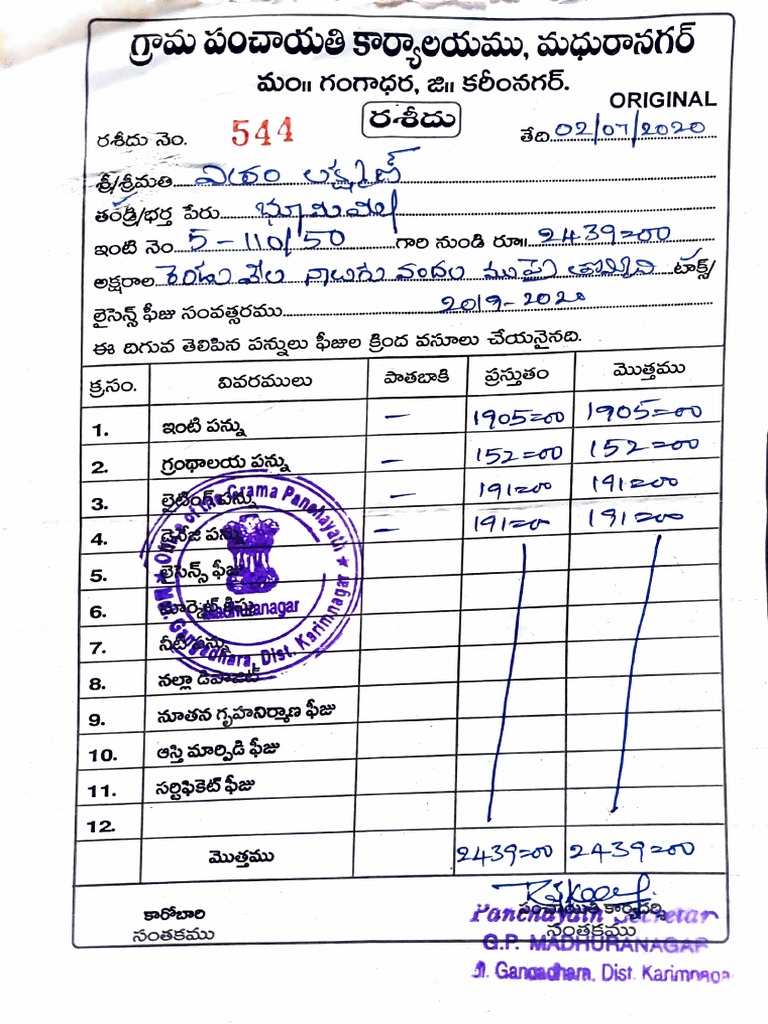 గ్రామ పంచాయతి కార్యాలయము, మధురానగర్
మం॥ గంగాధర, జి॥ కరీంనగర్.
ORIGINAL
రశీదు నెం. 544 రశీదు తేది. 02/07/2020
శ్రీ/శ్రీమతి లక్ష్మణ్
తండ్రి/భర్త పేరు
ఇంటి నెం. 5-110/50 గారి నుండి రూ॥ 2439=00
అక్షరాల రెండు వేల నాలుగు వందల ముప్పై తొమ్మిది టాక్స్/
లైసెన్స్ ఫీజు సంవత్సరము 2019-2020
ఈ దిగువ తెలిపిన పన్నులు ఫీజుల క్రింద వసూలు చేయనైనది.
క్ర.సం. వివరములు పాతబాకి ప్రస్తుతం మొత్తము
1. ఇంటి పన్ను — 1905=00 1905=00
2. గ్రంథాలయ పన్ను — 152=00 152=00
3. లైటింగ్ పన్ను — 191=00 191=00
4. డ్రైనేజి పన్ను — 191=00 191=00
5. లైసెన్స్ ఫీజు
6. మార్కెట్
7. నీటి పన్ను
8. నల్లా డిపాజిట్
9. నూతన గృహనిర్మాణ ఫీజు
10. ఆస్తి మార్పిడి ఫీజు
11. సర్టిఫికెట్ ఫీజు
12.
మొత్తము 2439=00 2439=00
Office of the Grama Panchayath
Madhuranagar
M. Gangadhara, Dist. Karimnagar
కారోబారి పంచాయతి కార్యదర్శి
సంతకము సంతకము
Panchayath Secretar
G.P. MADHURANAGAR
M. Gangadhara, Dist. Karimnaga